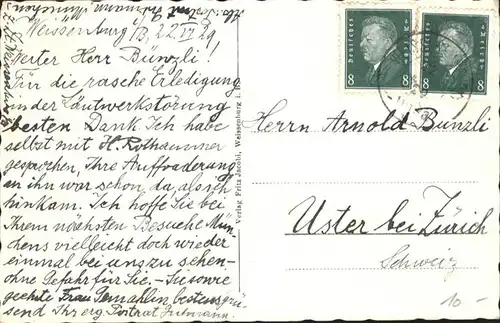 Weissenburg i/B, 22 VI 29
Werter Herr Bünzli!
Für die rasche Erledigung
in der Läutwerkstörung
besten Dank. Ich habe
selbst mit H. Rothammer
gesprochen, Ihre Aufforderung
an ihn war schon da, als ich
hinkam. Ich hoffe Sie bei
Ihrem nächsten Besuche Mün-
chens vielleicht doch wieder
einmal bei uns zu sehen-
ohne Gefahr für Sie. - Sie sowie
geehrte Frau Gemahlin bestens grüs-
send Ihr erg.
Verlag Fritz Jacobi, Weissenburg i. B.
Deutsches Reich
8 8
Deutsches Reich
8
Herrn Arnold Bünzli
Uster bei Zürich
Schweiz
10 -